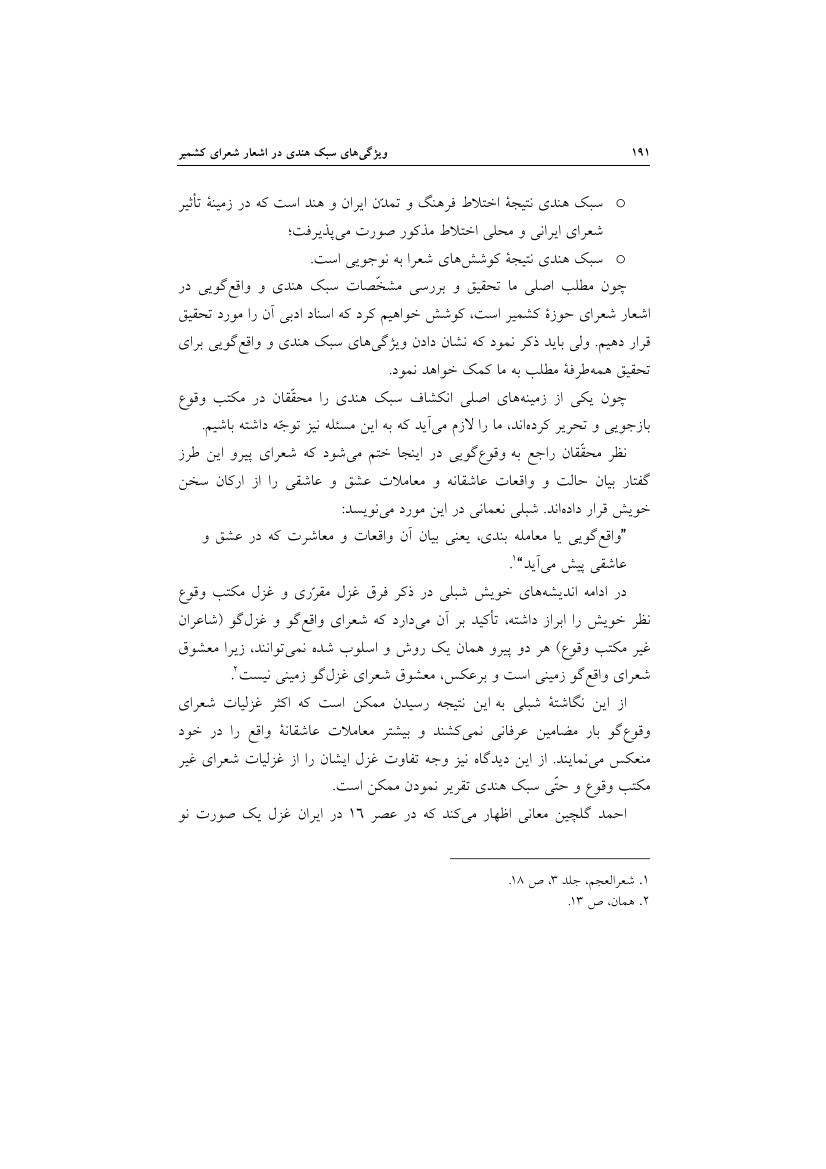 ۱۹۱ ویژگی‌های سبک هندی در اشعار شعرای کشمیر
○ سبک هندی نتیجۀ اختلاط فرهنگ و تمدّن ایران و هند است که در زمینۀ تأثیر
شعرای ایرانی و محلی اختلاط مذکور صورت می‌پذیرفت؛
○ سبک هندی نتیجۀ کوشش‌های شعرا به نوجویی است.
چون مطلب اصلی ما تحقیق و بررسی مشخّصات سبک هندی و واقع‌گویی در
اشعار شعرای حوزۀ کشمیر است، کوشش خواهیم کرد که اسناد ادبی آن را مورد تحقیق
قرار دهیم. ولی باید ذکر نمود که نشان دادن ویژگی‌های سبک هندی و واقع‌گویی برای
تحقیق همه‌طرفۀ مطلب به ما کمک خواهد نمود.
چون یکی از زمینه‌های اصلی انکشاف سبک هندی را محقّقان در مکتب وقوع
بازجویی و تحریر کرده‌اند، ما را لازم می‌آید که به این مسئله نیز توجّه داشته باشیم.
نظر محقّقان راجع به وقوع‌گویی در اینجا ختم می‌شود که شعرای پیرو این طرز
گفتار بیان حالت و واقعات عاشقانه و معاملات عشق و عاشقی را از ارکان سخن
خویش قرار داده‌اند. شبلی نعمانی در این مورد می‌نویسد:
”واقع‌گویی یا معامله بندی، یعنی بیان آن واقعات و معاشرت که در عشق و
عاشقی پیش می‌آید“۱.
در ادامه اندیشه‌های خویش شبلی در ذکر فرق غزل مقرّری و غزل مکتب وقوع
نظر خویش را ابراز داشته، تأکید بر آن می‌دارد که شعرای واقع‌گو و غزل‌گو (شاعران
غیر مکتب وقوع) هر دو پیرو همان یک روش و اسلوب شده نمی‌توانند، زیرا معشوق
شعرای واقع‌گو زمینی است و برعکس، معشوق شعرای غزل‌گو زمینی نیست۲.
از این نگاشتۀ شبلی به این نتیجه رسیدن ممکن است که اکثر غزلیات شعرای
وقوع‌گو بار مضامین عرفانی نمی‌کشند و بیشتر معاملات عاشقانۀ واقع را در خود
منعکس می‌نمایند. از این دیدگاه نیز وجه تفاوت غزل ایشان را از غزلیات شعرای غیر
مکتب وقوع و حتّی سبک هندی تقریر نمودن ممکن است.
احمد گلچین معانی اظهار می‌کند که در عصر ۱۶ در ایران غزل یک صورت نو
۱. شعرالعجم، جلد ۳، ص ۱۸.
۲. همان، ص ۱۳.